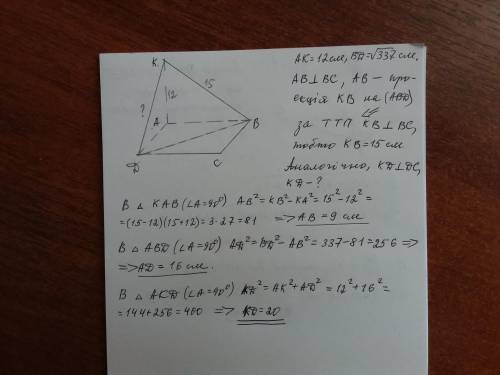 K
AK=12см, BD=√337 см.
15
AB⊥BC, AB – про-
12
?
екція KB на (ABD)
A
⇐
B
за ТТП KB⊥BC,
тобто KB=15 см
D
C
Аналогічно, KD⊥DC,
KD-?
В △ KAB (∠A=90⁰) AB²=KB²-KA²=15²-12²=
=(15-12)(15+12)=3·27=81 => AB=9 см
В △ ABD (∠A=90⁰) AD²=BD²-AB²=337-81=256 =>
=> AD=16 см.
В △ AKD (∠A=90⁰) KD²=AK²+AD²=12²+16²=
=144+256=400 => KD=20